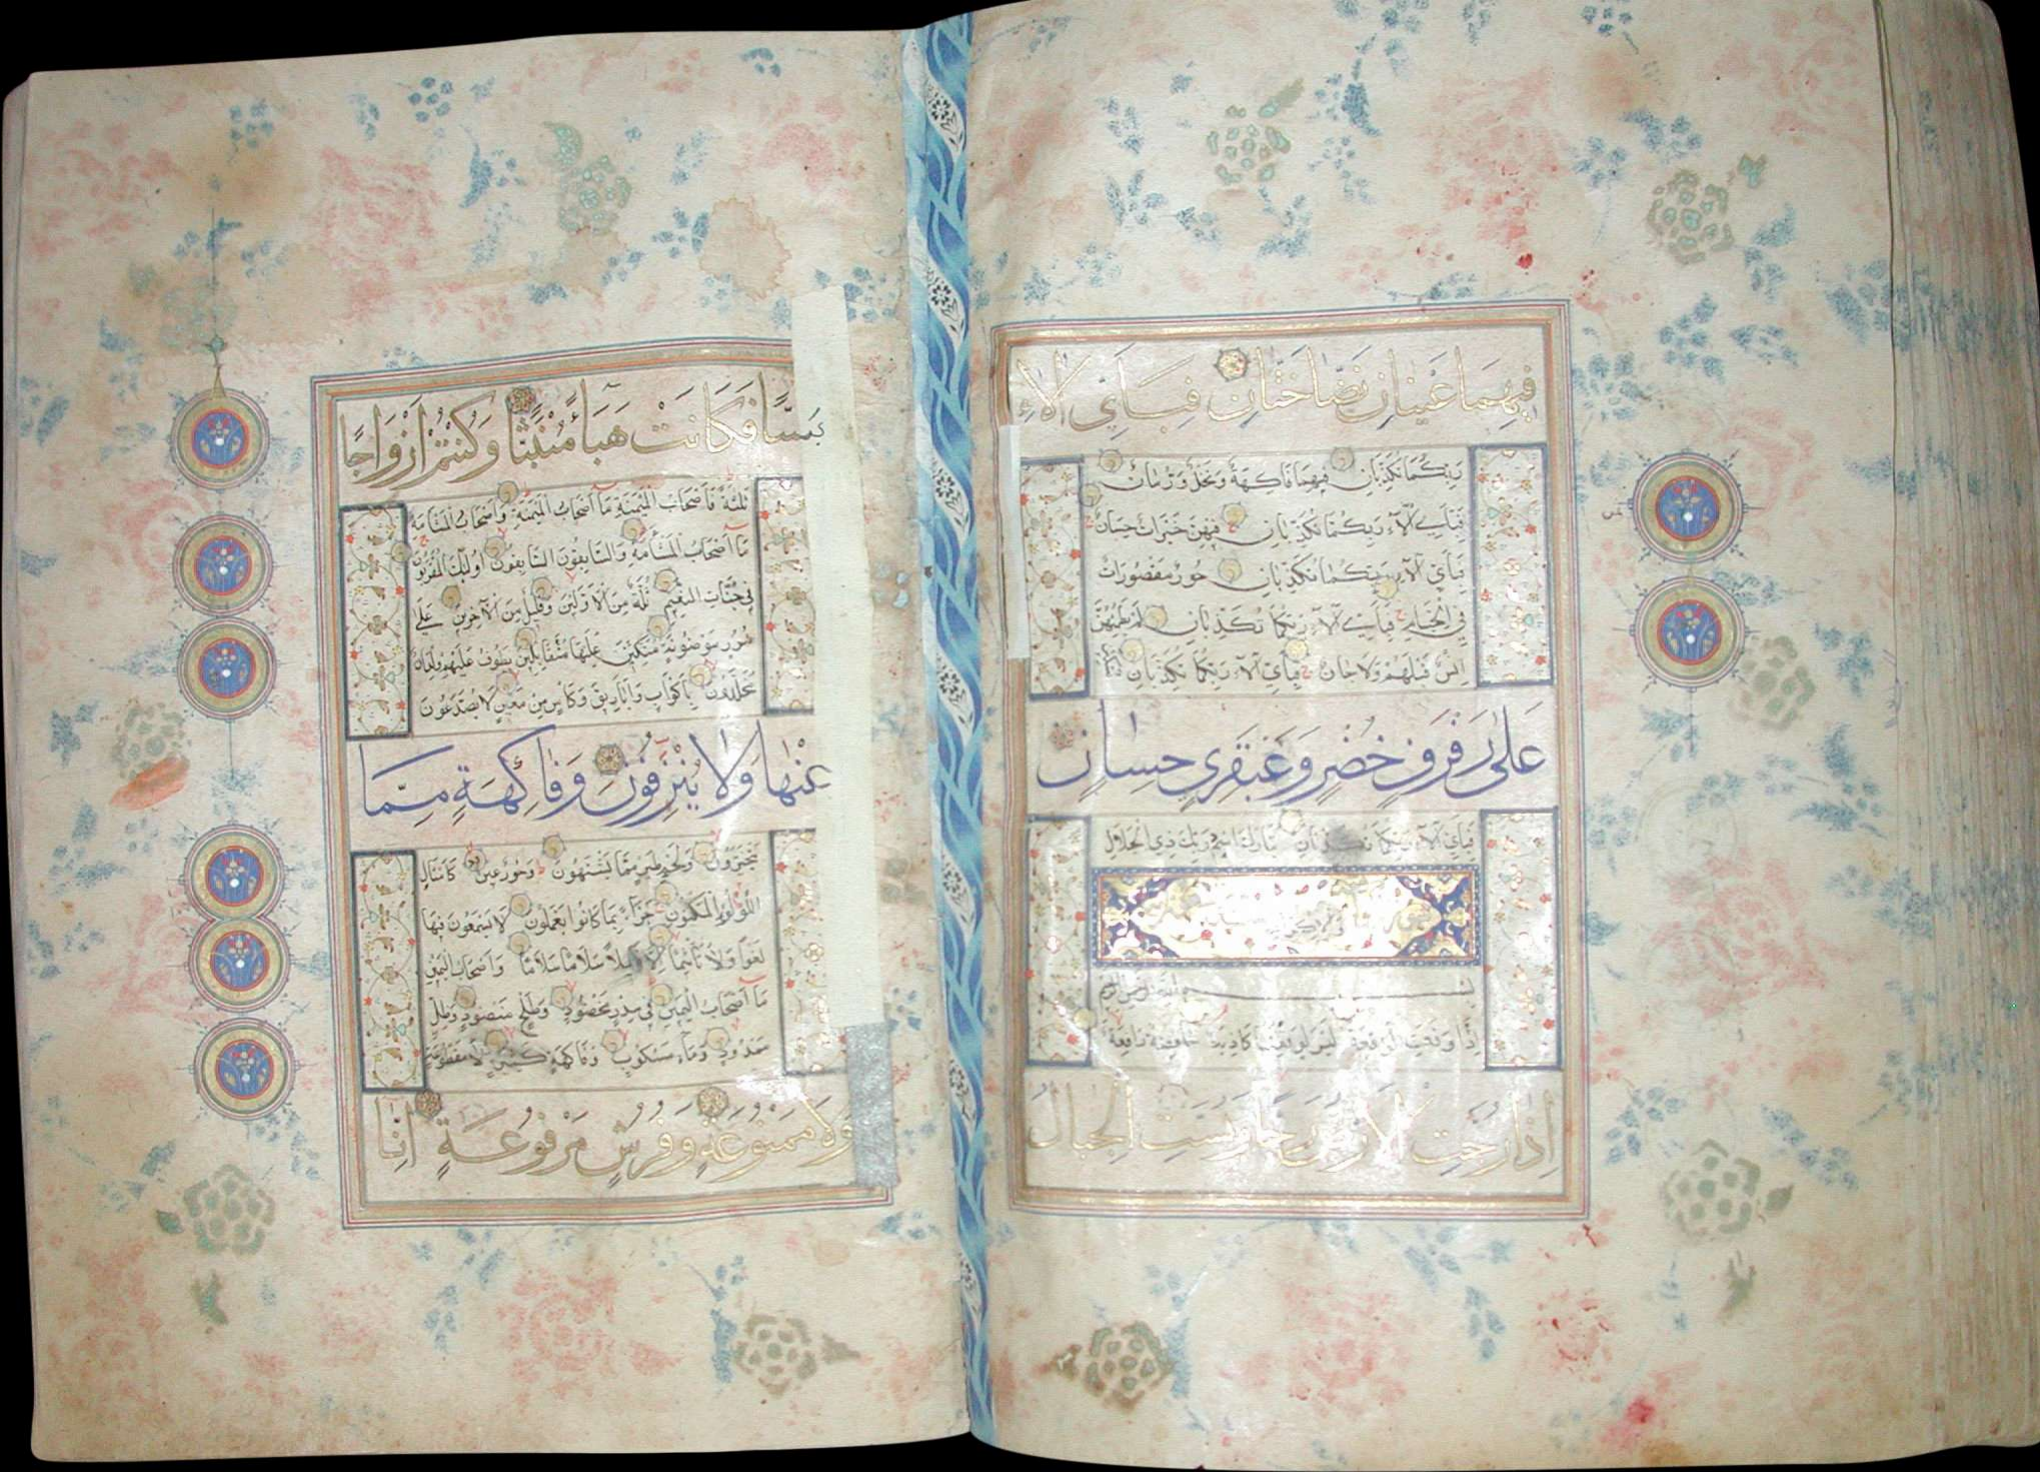 فِيهِمَا عَيْنَانِ نَضَّاخَتَانِ فَبِأَيِّ آلَاءِ
رَبِّكُمَا تُكَذِّبَانِ فِيهِمَا فَاكِهَةٌ وَنَخْلٌ وَرُمَّانٌ
فَبِأَيِّ آلَاءِ رَبِّكُمَا تُكَذِّبَانِ فِيهِنَّ خَيْرَاتٌ حِسَانٌ
فَبِأَيِّ آلَاءِ رَبِّكُمَا تُكَذِّبَانِ حُورٌ مَقْصُورَاتٌ
فِي الْخِيَامِ فَبِأَيِّ آلَاءِ رَبِّكُمَا تُكَذِّبَانِ لَمْ يَطْمِثْهُنَّ
إِنْسٌ قَبْلَهُمْ وَلَا جَانٌّ فَبِأَيِّ آلَاءِ رَبِّكُمَا تُكَذِّبَانِ
عَلَى رَفْرَفٍ خُضْرٍ وَعَبْقَرِيٍّ حِسَانٍ
فَبِأَيِّ آلَاءِ رَبِّكُمَا تُكَذِّبَانِ تَبَارَكَ اسْمُ رَبِّكَ ذِي الْجَلَالِ
بسم الله الرحمن الرحيم
إِذَا وَقَعَتِ الْوَاقِعَةُ لَيْسَ لِوَقْعَتِهَا كَاذِبَةٌ خَافِضَةٌ رَافِعَةٌ
إِذَا رُجَّتِ الْأَرْضُ رَجًّا وَبُسَّتِ الْجِبَالُ
بَسًّا فَكَانَتْ هَبَاءً مُنْبَثًّا وَكُنْتُمْ أَزْوَاجًا
ثَلَاثَةً فَأَصْحَابُ الْمَيْمَنَةِ مَا أَصْحَابُ الْمَيْمَنَةِ وَأَصْحَابُ الْمَشْأَمَةِ
مَا أَصْحَابُ الْمَشْأَمَةِ وَالسَّابِقُونَ السَّابِقُونَ أُولَئِكَ الْمُقَرَّبُونَ
فِي جَنَّاتِ النَّعِيمِ ثُلَّةٌ مِنَ الْأَوَّلِينَ وَقَلِيلٌ مِنَ الْآخِرِينَ عَلَى
سُرُرٍ مَوْضُونَةٍ مُتَّكِئِينَ عَلَيْهَا مُتَقَابِلِينَ يَطُوفُ عَلَيْهِمْ وِلْدَانٌ
مُخَلَّدُونَ بِأَكْوَابٍ وَأَبَارِيقَ وَكَأْسٍ مِنْ مَعِينٍ لَا يُصَدَّعُونَ
عَنْهَا وَلَا يُنْزِفُونَ وَفَاكِهَةٍ مِمَّا
يَتَخَيَّرُونَ وَلَحْمِ طَيْرٍ مِمَّا يَشْتَهُونَ وَحُورٌ عِينٌ كَأَمْثَالِ
اللُّؤْلُؤِ الْمَكْنُونِ جَزَاءً بِمَا كَانُوا يَعْمَلُونَ لَا يَسْمَعُونَ فِيهَا
لَغْوًا وَلَا تَأْثِيمًا إِلَّا قِيلًا سَلَامًا سَلَامًا وَأَصْحَابُ الْيَمِينِ
مَا أَصْحَابُ الْيَمِينِ فِي سِدْرٍ مَخْضُودٍ وَطَلْحٍ مَنْضُودٍ وَظِلٍّ
مَمْدُودٍ وَمَاءٍ مَسْكُوبٍ وَفَاكِهَةٍ كَثِيرَةٍ لَا مَقْطُوعَةٍ
وَلَا مَمْنُوعَةٍ وَفُرُشٍ مَرْفُوعَةٍ إِنَّا